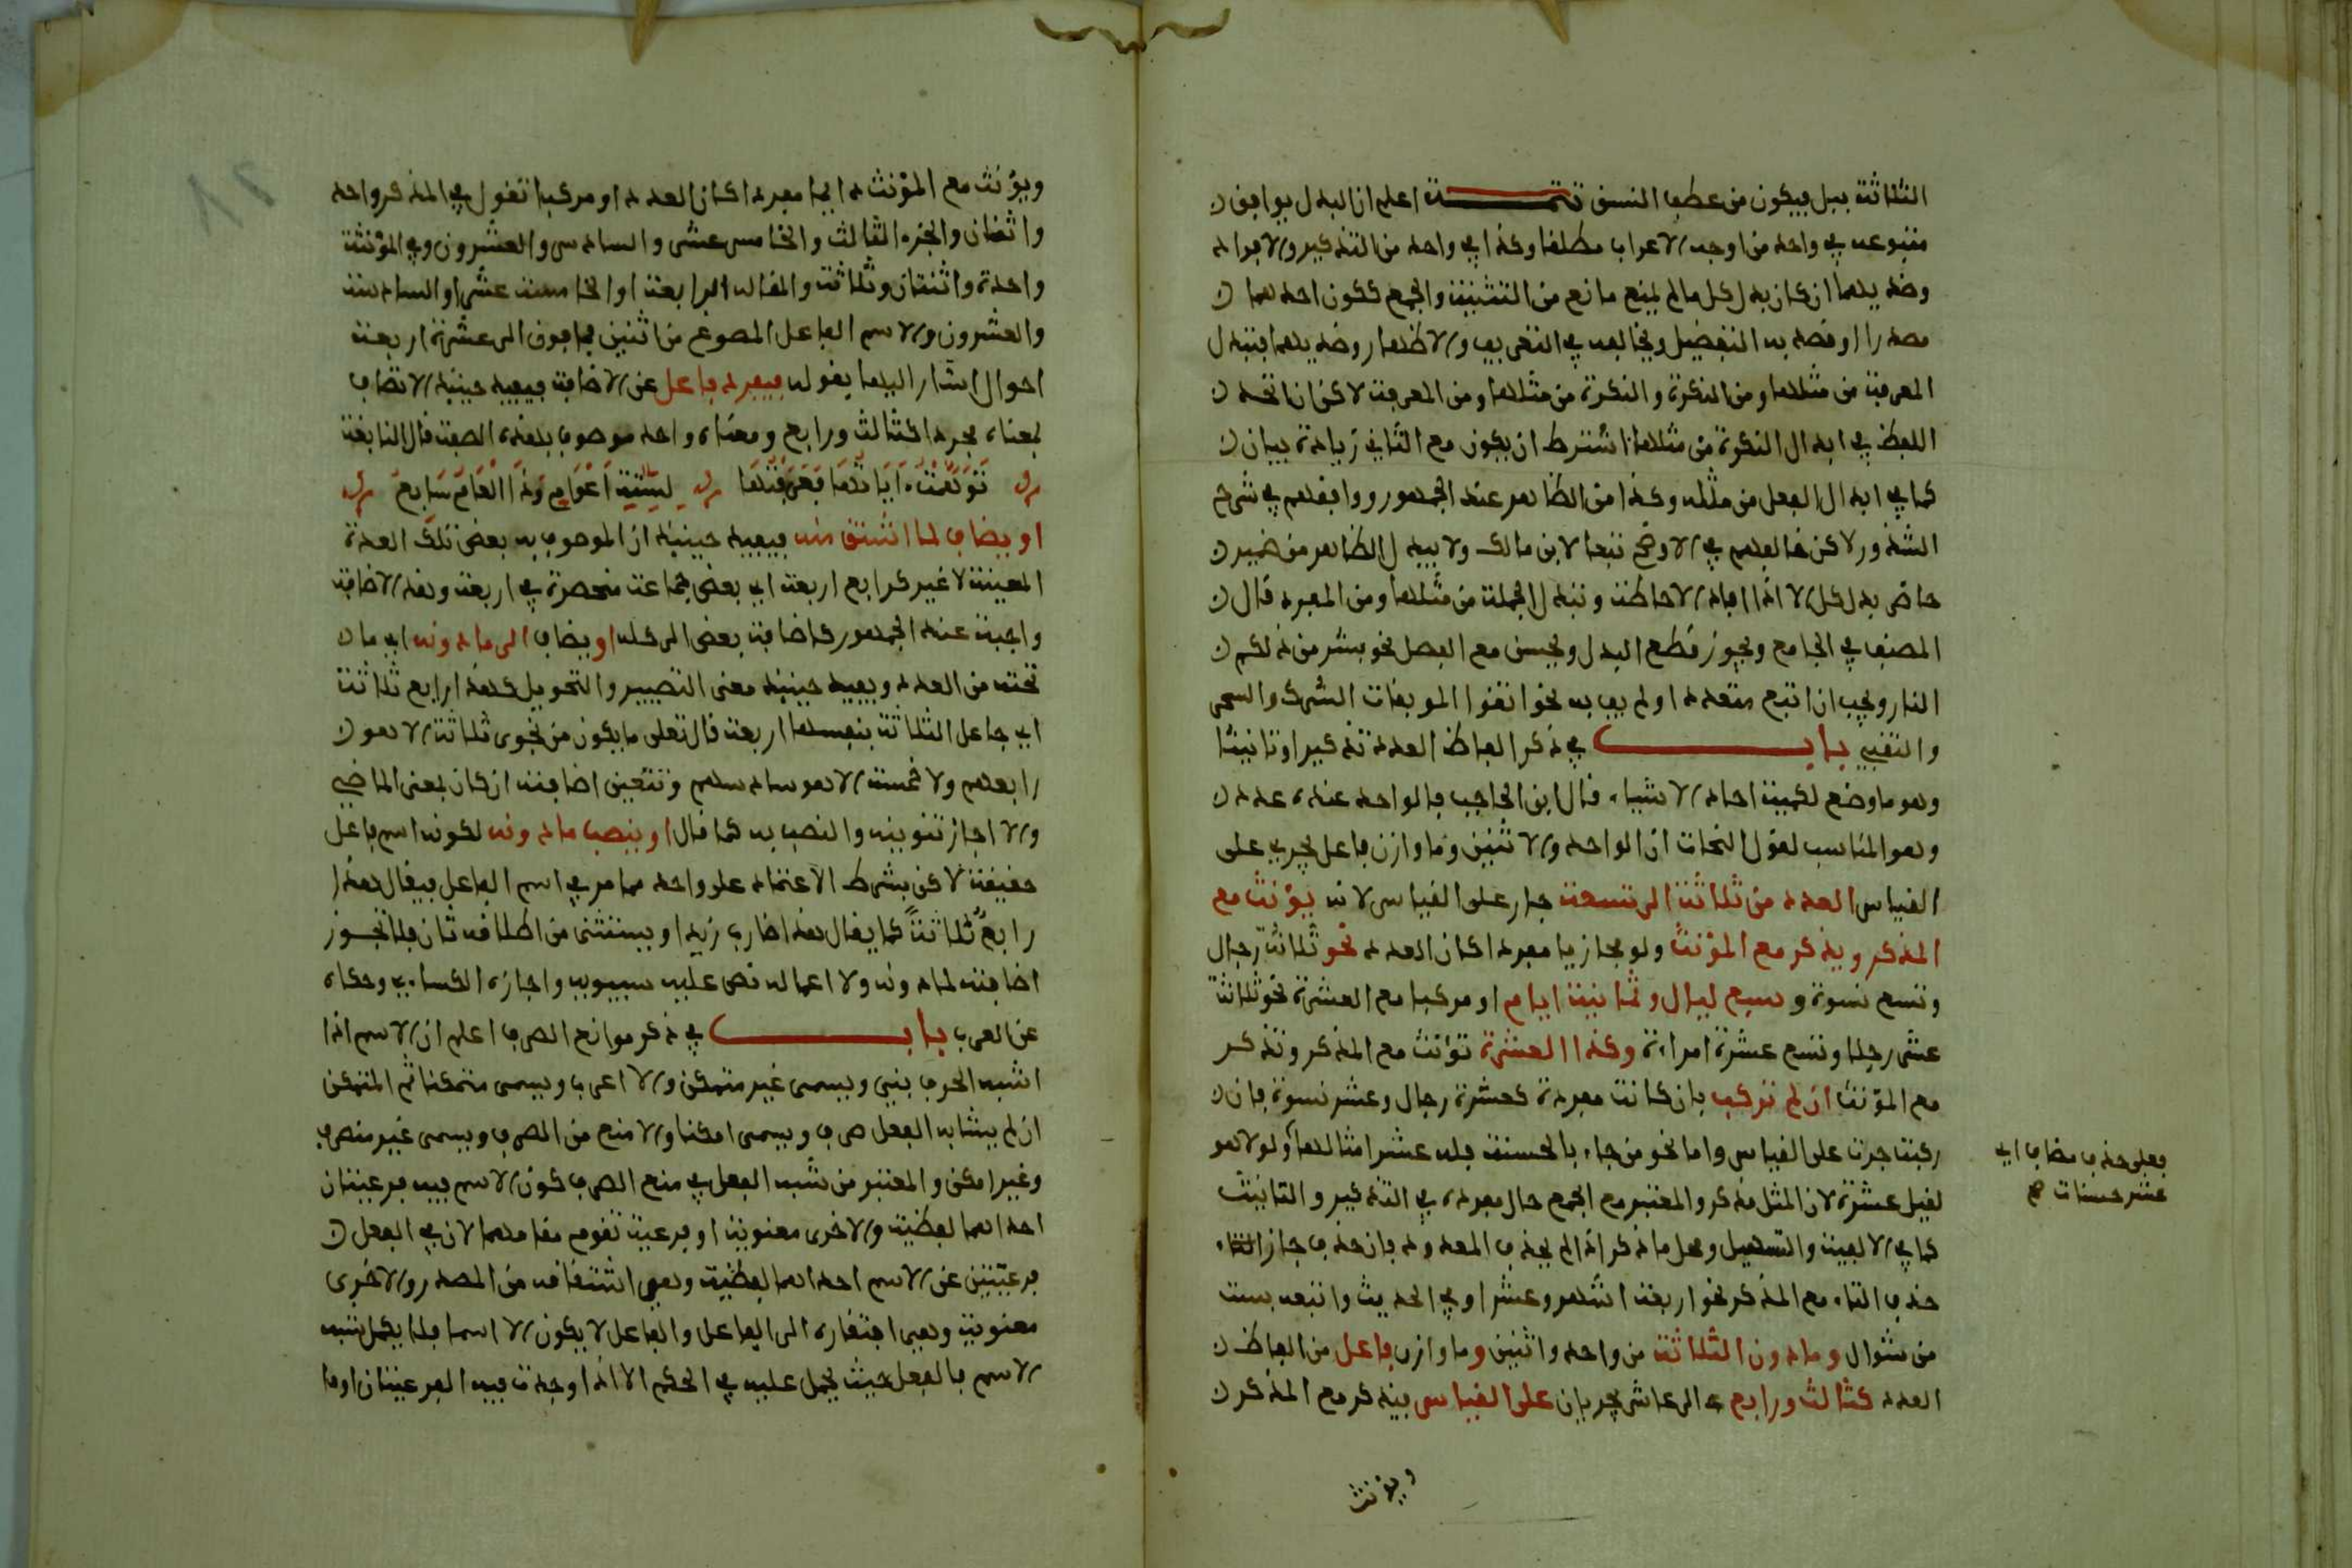 الثلاثة ببل فيكون من عطف النسق تتمـــــة اعلم ان البدل يوافق
متبوعه في واحد من اوجه الاعراب مطلقا وكذا في واحد من التذكير والافراد
وضديهما ان كان بدل كل ما لم يمنع مانع من التثنية والجمع ككون احدهما
مصدرا او قصد به التفضيل ويخالفه في التعريف والاظهار وضديهما فتبدل
المعرفة من مثلها ومن النكرة والنكرة من مثلها ومن المعرفة لاكن ان اتحد
اللفظ في ابدال النكرة من مثلها اشترط ان يكون مع الثاني زيادة بيان
كما في ابدال الفعل من مثله وكذا من الظاهر عند الجمهور ووافقهم في شرح
الشذور لاكن خالفهم في الاوضح تبعا لابن مالك ولا يبدل الظاهر من ضمير
حاضر بدل كل الا اذا افاد الاحاطة وتبدل الجملة من مثلها ومن المفرد قال
المصنف في الجامع ويجوز قطع البدل ويحسن مع الفصل نحو بشر من ذلكم
النار ويجب ان اتبع متعدد او لم يف به نحو اتقوا الموبقات الشرك والسحر
والتقييـ بابـــــ في ذكر الفاظ العدد تذكيرا وتانيثا
وهو ما وضع لكمية احاد الاشياء قال ابن الحاجب فالواحد عنده عدد
وهو المناسب لقول النحات ان الواحد والاثنين وما وازن فاعل يجري على
القياس العدد من ثلاثة الى تسعة جار على القياس لانه يؤنث مع
المذكر ويذكر مع المؤنث ولو مجازيا مفردا كان العدد نحو ثلاثة رجال
وتسع نسوة وسبع ليال وثمانية ايام او مركبا مع العشرة نحو ثلاثة
عشر رجلا وتسع عشرة امراة وكذا العشرة تؤنث مع المذكر وتذكر
مع المؤنث ان لم تركب بان كانت مفردة كعشرة رجال وعشر نسوة فان
ركبت جرت على القياس واما نحو من جاء بالحسنة فله عشر امثالها ولولا هو
لقيل عشرة لان المثل مذكر والمعتبر مع الجمع حال مفرده في التذكير والتانيث
كما في الالفية والتسهيل ومحل ما ذكر اذا لم يحذف المعدود فان حذف جاز
حذف التاء مع المذكر نحو اربعة اشهر وعشرا وفي الحديث واتبعه بست
من شوال وما دون الثلاثة من واحد واثنين وما وازن فاعل من الفاظ
العدد كثالث ورابع الى عاشر يجريان على القياس فيذكر مع المذكر
ويؤنث
فعلى حذف مضاف اي
عشر حسنات صح
ويؤنث مع المؤنث دايما مفردا كان العدد او مركبا تقول في المذكر واحد
واثنان والجزء الثالث والخامس عشر والسادس والعشرون وفي المؤنثة
واحدة واثنتان وثلاثة والمقالة الرابعة او الخامسة عشر او السادسة
والعشرون ولاسم الفاعل المصوغ من اثنين فما فوق الى عشرة اربعة
احوال اشار اليها بقوله فيفرد فاعل عن الاضافة فيفيد حينيذ الاتصاف
بمعناه مجردا كثالث ورابع ومعناه واحد موصوف بهذه الصفة قال النابغة
تَوَهَّمْتُ اٰيَاتٍ لَهَا فَعَرَفْتُهَا لِسِتَّةِ أَعْوَامٍ وَذَا الْعَامُ سَابِعُ
او يضاف لما اشتق منه فيفيد حينيذ ان الموصوف به بعض تلك العدة
المعينة لا غير كرابع اربعة اي بعض جماعة منحصرة في اربعة وهذه الاضافة
واجبة عند الجمهور كاضافة بعض الى كله او يضاف الى ما دونه اي ما
تحته من العدد ويفيد حينيذ معنى التصيير والتحويل كهذا رابع ثلاثة
اي جاعل الثلاثة بنفسها اربعة قال تعلى ما يكون من نجوى ثلاثة الا هو
رابعهم ولا خمسة الا هو سادسهم وتتعين اضافته ان كان بمعنى الماضي
والا جاز تنوينه والنصب به كما قال او ينصب ما دونه لكونه اسم فاعل
حقيقة لاكن بشرط الاعتماد على واحد مما مر في اسم الفاعل فيقال هذا
رابعٌ ثلاثةً كما يقال هذا ضارب زيدا ويستثنى من اطلاقه ثان فلا تجوز
اضافته لما دونه ولا اعماله نص عليه سيبويه واجازه الكساءي وحكاه
عن العرب بابـــــ في ذكر موانع الصرف اعلم ان الاسم اذا
اشبه الحرف بني ويسمى غير متمكن والا اعرب ويسمى متمكنا ثم المتمكن
ان لم يشابه الفعل صرف ويسمى امكنا والا منع من الصرف ويسمى غير منصرف
وغير امكن والمعتبر من شبه الفعل في منع الصرف كون الاسم فيه فرعيتان
احداهما لفظية والاخرى معنوية او فرعية تقوم مقامهما لان في الفعل
فرعيتين عن الاسم احداهما لفظية وهي اشتقاقه من المصدر والاخرى
معنوية وهي افتقاره الى الفاعل والفاعل لا يكون الا اسما فلا يكمل شبه
الاسم بالفعل حيث يحمل عليه في الحكم الا اذا وجدت فيه الفرعيتان او ما